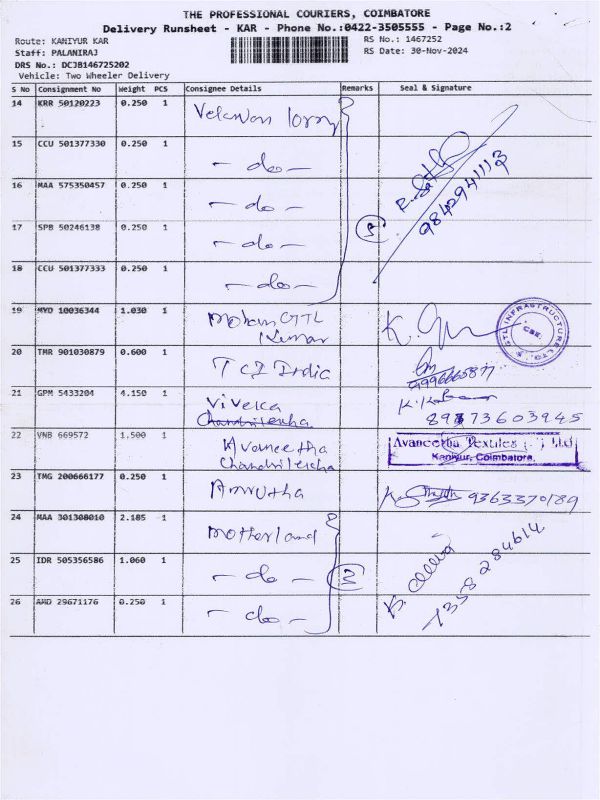 THE PROFESSIONAL COURIERS, COIMBATORE
Delivery Runsheet - KAR - Phone No.:0422-3505555 - Page No.:2
Route: KANIYUR KAR
RS No.: 1467252
Staff: PALANIRAJ
RS Date: 30-Nov-2024
DRS No.: DCJB146725202
Vehicle: Two Wheeler Delivery
S No Consignment No Weight PCS Consignee Details Remarks Seal & Signature
14 KRR 50120223 0.250 1 Velavan lorry
15 CCU 501377330 0.250 1 - do -
16 MAA 575350457 0.250 1 - do -
9842941113
17 SPB 50246138 0.250 1 - do - 5
18 CCU 501377333 0.250 1 - do -
19 MYD 10036344 1.030 1 Mohan GTL
Kumar
GTL INFRASTRUCTURE LTD.
20 TMR 901030879 0.600 1 TCI India
21 GPM 5433204 4.150 1 Viveka
8973603945
22 VNB 669572 1.500 1 Avaneetha
Avaneetha Textiles (P) Ltd
Kaniyur, Coimbatore.
23 TMG 200666177 0.250 1 Amrutha 9363370189
24 MAA 301308010 2.185 1 Motherland
25 IDR 505356586 1.060 1 - do - 3
7358284614
26 AMD 29671176 0.250 1 - do -